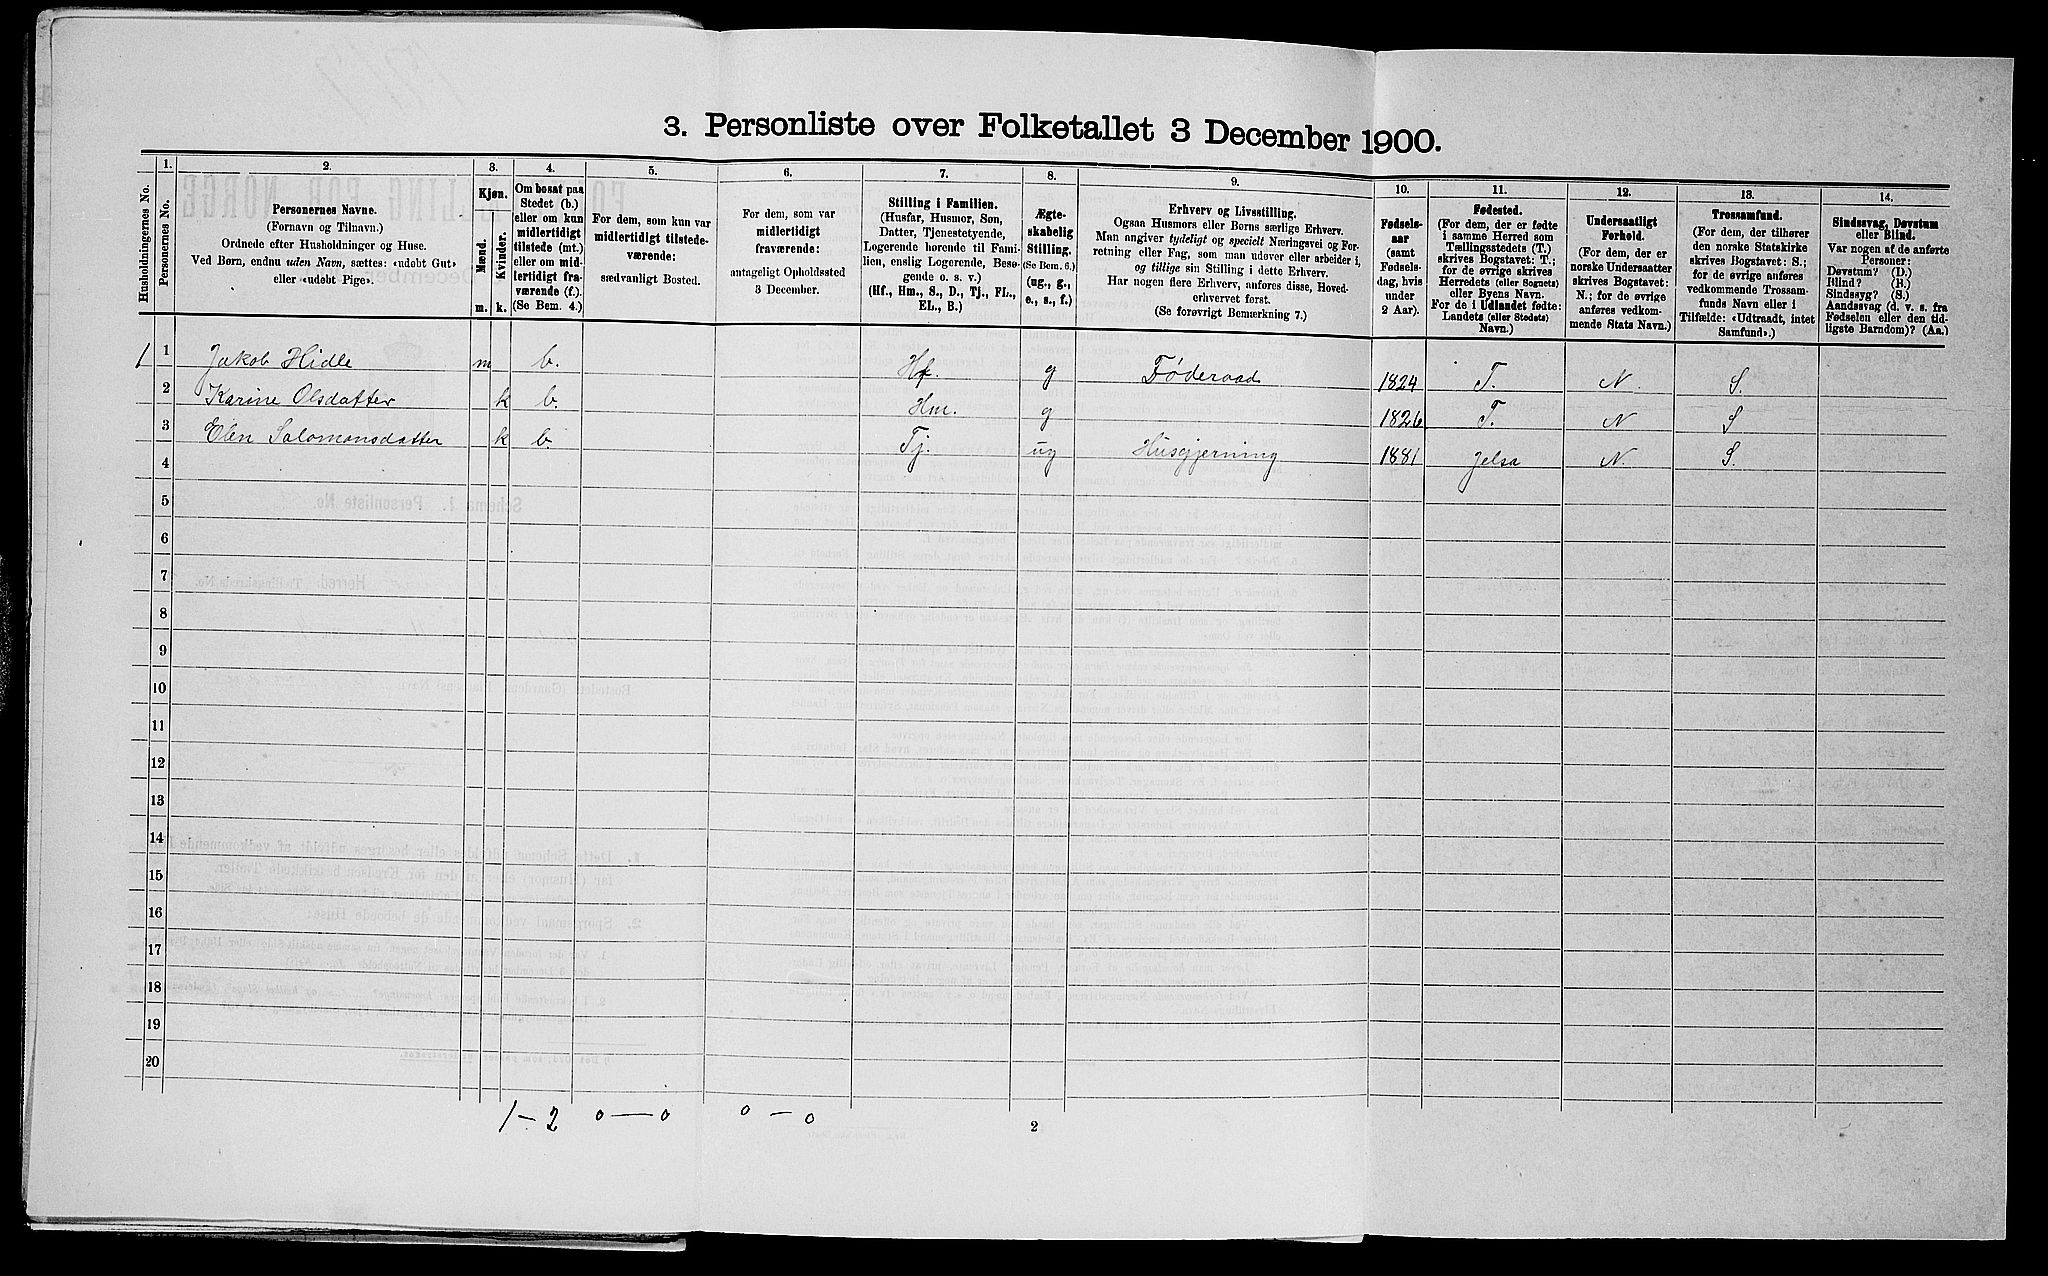 3. Personliste over Folketallet 3 December 1900.
1. 2. 3. 4. 5. 6. 7. 8. 9. 10. 11. 12. 13. 14.
Husholdningernes No.
Personernes No.
Personernes Navne.
(Fornavn og Tilnavn.)
Ordnede efter Husholdninger og Huse.
Ved Børn, endnu uden Navn, sættes: «udøbt Gut»
eller «udøbt Pige».
Kjøn.
Mænd.
Kvinder.
m. k.
Om bosat paa
Stedet (b.)
eller om kun
midlertidigt
tilstede (mt.)
eller om mid-
lertidigt fra-
værende (f.).
(Se Bem. 4.)
For dem, som kun var
midlertidigt tilstede-
værende:
sædvanligt Bosted.
For dem, som var
midlertidigt
fraværende:
antageligt Opholdssted
3 December.
Stilling i Familien.
(Husfar, Husmor, Søn,
Datter, Tjenestetyende,
Logerende hørende til Fami-
lien, enslig Logerende, Besø-
gende o. s. v.)
(Hf., Hm., S., D., Tj., FL.,
EL., B.)
Ægte-
skabelig
Stilling.
(Se Bem. 6.)
(ug., g.,
e., s., f.)
Erhverv og Livsstilling.
Ogsaa Husmors eller Børns særlige Erhverv.
Man angiver tydeligt og specielt Næringsvei og For-
retning eller Fag, som man udøver eller arbeider i,
og tillige sin Stilling i dette Erhverv.
Har nogen flere Erhverv, anføres disse, Hoved-
erhvervet først.
(Se forøvrigt Bemærkning 7.)
Fødsels-
aar
(samt
Fødsels-
dag, hvis
under
2 Aar).
Fødested.
(For dem, der er fødte
i samme Herred som
Tællingsstedets (T.),
skrives Bogstavet: T.;
for de øvrige skrives
Herredets (eller Sognets)
eller Byens Navn.
For de i Udlandet fødte:
Landets (eller Stedets)
Navn.)
Undersaatligt
Forhold.
(For dem, der er
norske Undersaatter
skrives Bogstavet:
N.; for de øvrige
anføres vedkom-
mende Stats Navn.)
Trossamfund.
(For dem, der tilhører
den norske Statskirke
skrives Bogstavet: S.;
for de øvrige anføres
vedkommende Trossam-
funds Navn eller i
Tilfælde: «Udtraadt, intet
Samfund».)
Sindssvag, Døvstum
eller Blind.
Var nogen af de anførte
Personer:
Døvstum? (D.)
Blind? (B.)
Sindssyg? (S.)
Aandssvag (d. v. s. fra
Fødselen eller den tid-
ligste Barndom)? (Aa.)
1 1 Jakob Hidle m b. Hf. g Føderaad 1824 T. N. S.
2 Karine Olsdatter k b. Hm. g 1826 T. N S
3 Elen Salomonsdatter k b. Tj. ug Husgjerning 1881 Jelsa N. S.
4
5
6
7
8
9
10
11
12
13
14
15
16
17
18
19
20
1 - 2 0 — 0 0 — 0
2